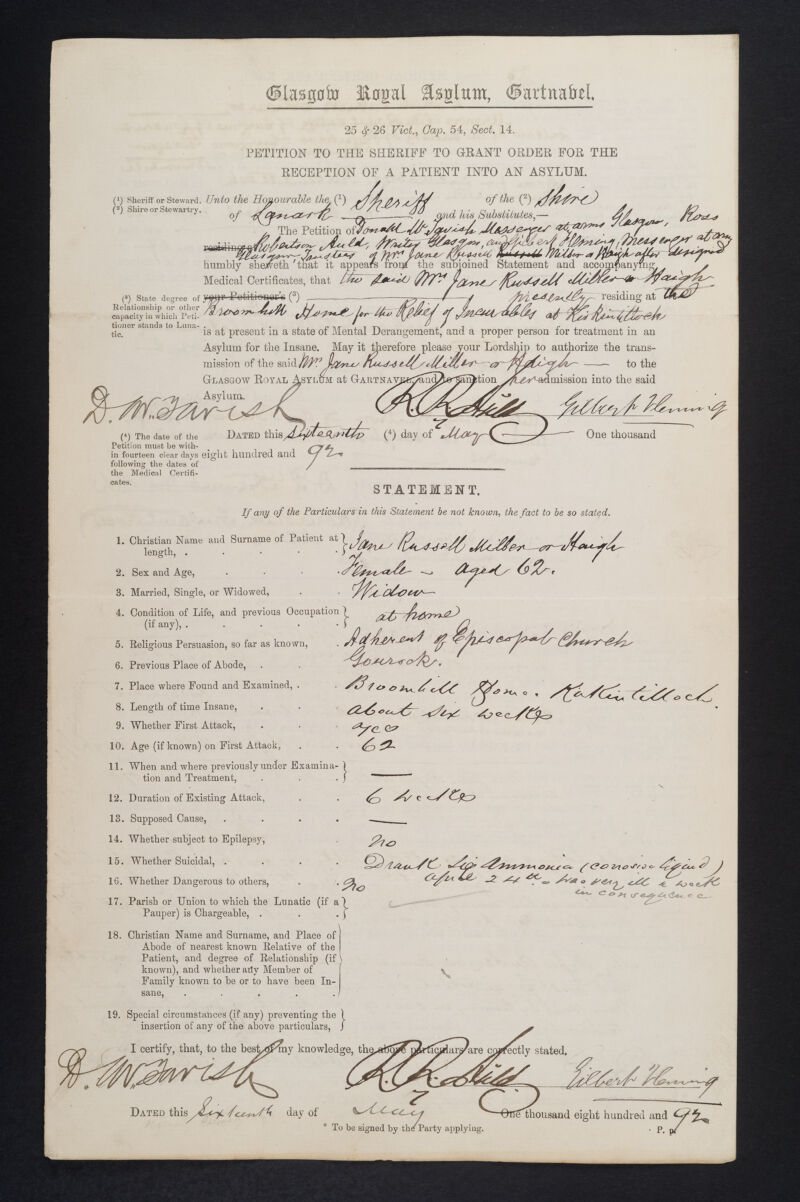 Glasgow Royal Asylum, Gartnabel.
25 & 26 Vict., Cap. 54, Sect. 14.
PETITION TO THE SHERIFF TO GRANT ORDER FOR THE
RECEPTION OF A PATIENT INTO AN ASYLUM.
(1) Sheriff or Steward.
(2) Shire or Stewartry.
Unto the Honourable the (1) Sheriff of the (2) Shire
of Lanark and his Substitutes,—
The Petition of Donald McTavish Messenger at arms Glasgow, Ross
residing at Robertson Auld, Writer Glasgow, and Gilbert Fleming, Messenger at arms
Glasgow, Trustees of Mrs Jane Russell Miller or Haigh after designed
humbly sheweth that it appears from the subjoined Statement and accompanying
Medical Certificates, that the said Mrs Jane Russell Miller or Haigh
(3) State degree of Relationship or other capacity in which Petitioner stands to Lunatic.
your Petitioner's (3) presently residing at the
Broomhill Home for the Relief of Incurables at Kirkintilloch
is at present in a state of Mental Derangement, and a proper person for treatment in an
Asylum for the Insane. May it therefore please your Lordship to authorize the trans-
mission of the said Mrs Jane Russell Miller or Haigh to the
GLASGOW ROYAL ASYLUM at GARTNAVEL, and to sanction her admission into the said
Asylum.
D. McTavish R. R. Auld Gilbert Fleming
(4) The date of the Petition must be within fourteen clear days following the dates of the Medical Certificates.
DATED this Sixteenth (4) day of May One thousand
eight hundred and 92
STATEMENT.
If any of the Particulars in this Statement be not known, the fact to be so stated.
1. Christian Name and Surname of Patient at length, . Jane Russell Miller or Haigh
2. Sex and Age, Female - aged 62.
3. Married, Single, or Widowed, Widow
4. Condition of Life, and previous Occupation (if any), . at home
5. Religious Persuasion, so far as known, Adherent of Episcopal Church
6. Previous Place of Abode, . Gourock.
7. Place where Found and Examined, . Broomhill Home. Kirkintilloch.
8. Length of time Insane, about six weeks
9. Whether First Attack, yes
10. Age (if known) on First Attack, 62
11. When and where previously under Examina-
tion and Treatment, —
12. Duration of Existing Attack, 6 weeks
13. Supposed Cause, —
14. Whether subject to Epilepsy, no
15. Whether Suicidal, . Drank Liq Ammonia (corrosive liquid)
April 24th - was very ill a week
in consequence
16. Whether Dangerous to others, no
17. Parish or Union to which the Lunatic (if a
Pauper) is Chargeable, .
18. Christian Name and Surname, and Place of
Abode of nearest known Relative of the
Patient, and degree of Relationship (if
known), and whether any Member of
Family known to be or to have been In-
sane, .
19. Special circumstances (if any) preventing the
insertion of any of the above particulars,
I certify, that, to the best of my knowledge, the above particulars are correctly stated.
D. McTavish R. R. Auld Gilbert Fleming
DATED this Sixteenth day of May One thousand eight hundred and 92
* To be signed by the Party applying.
P. p.